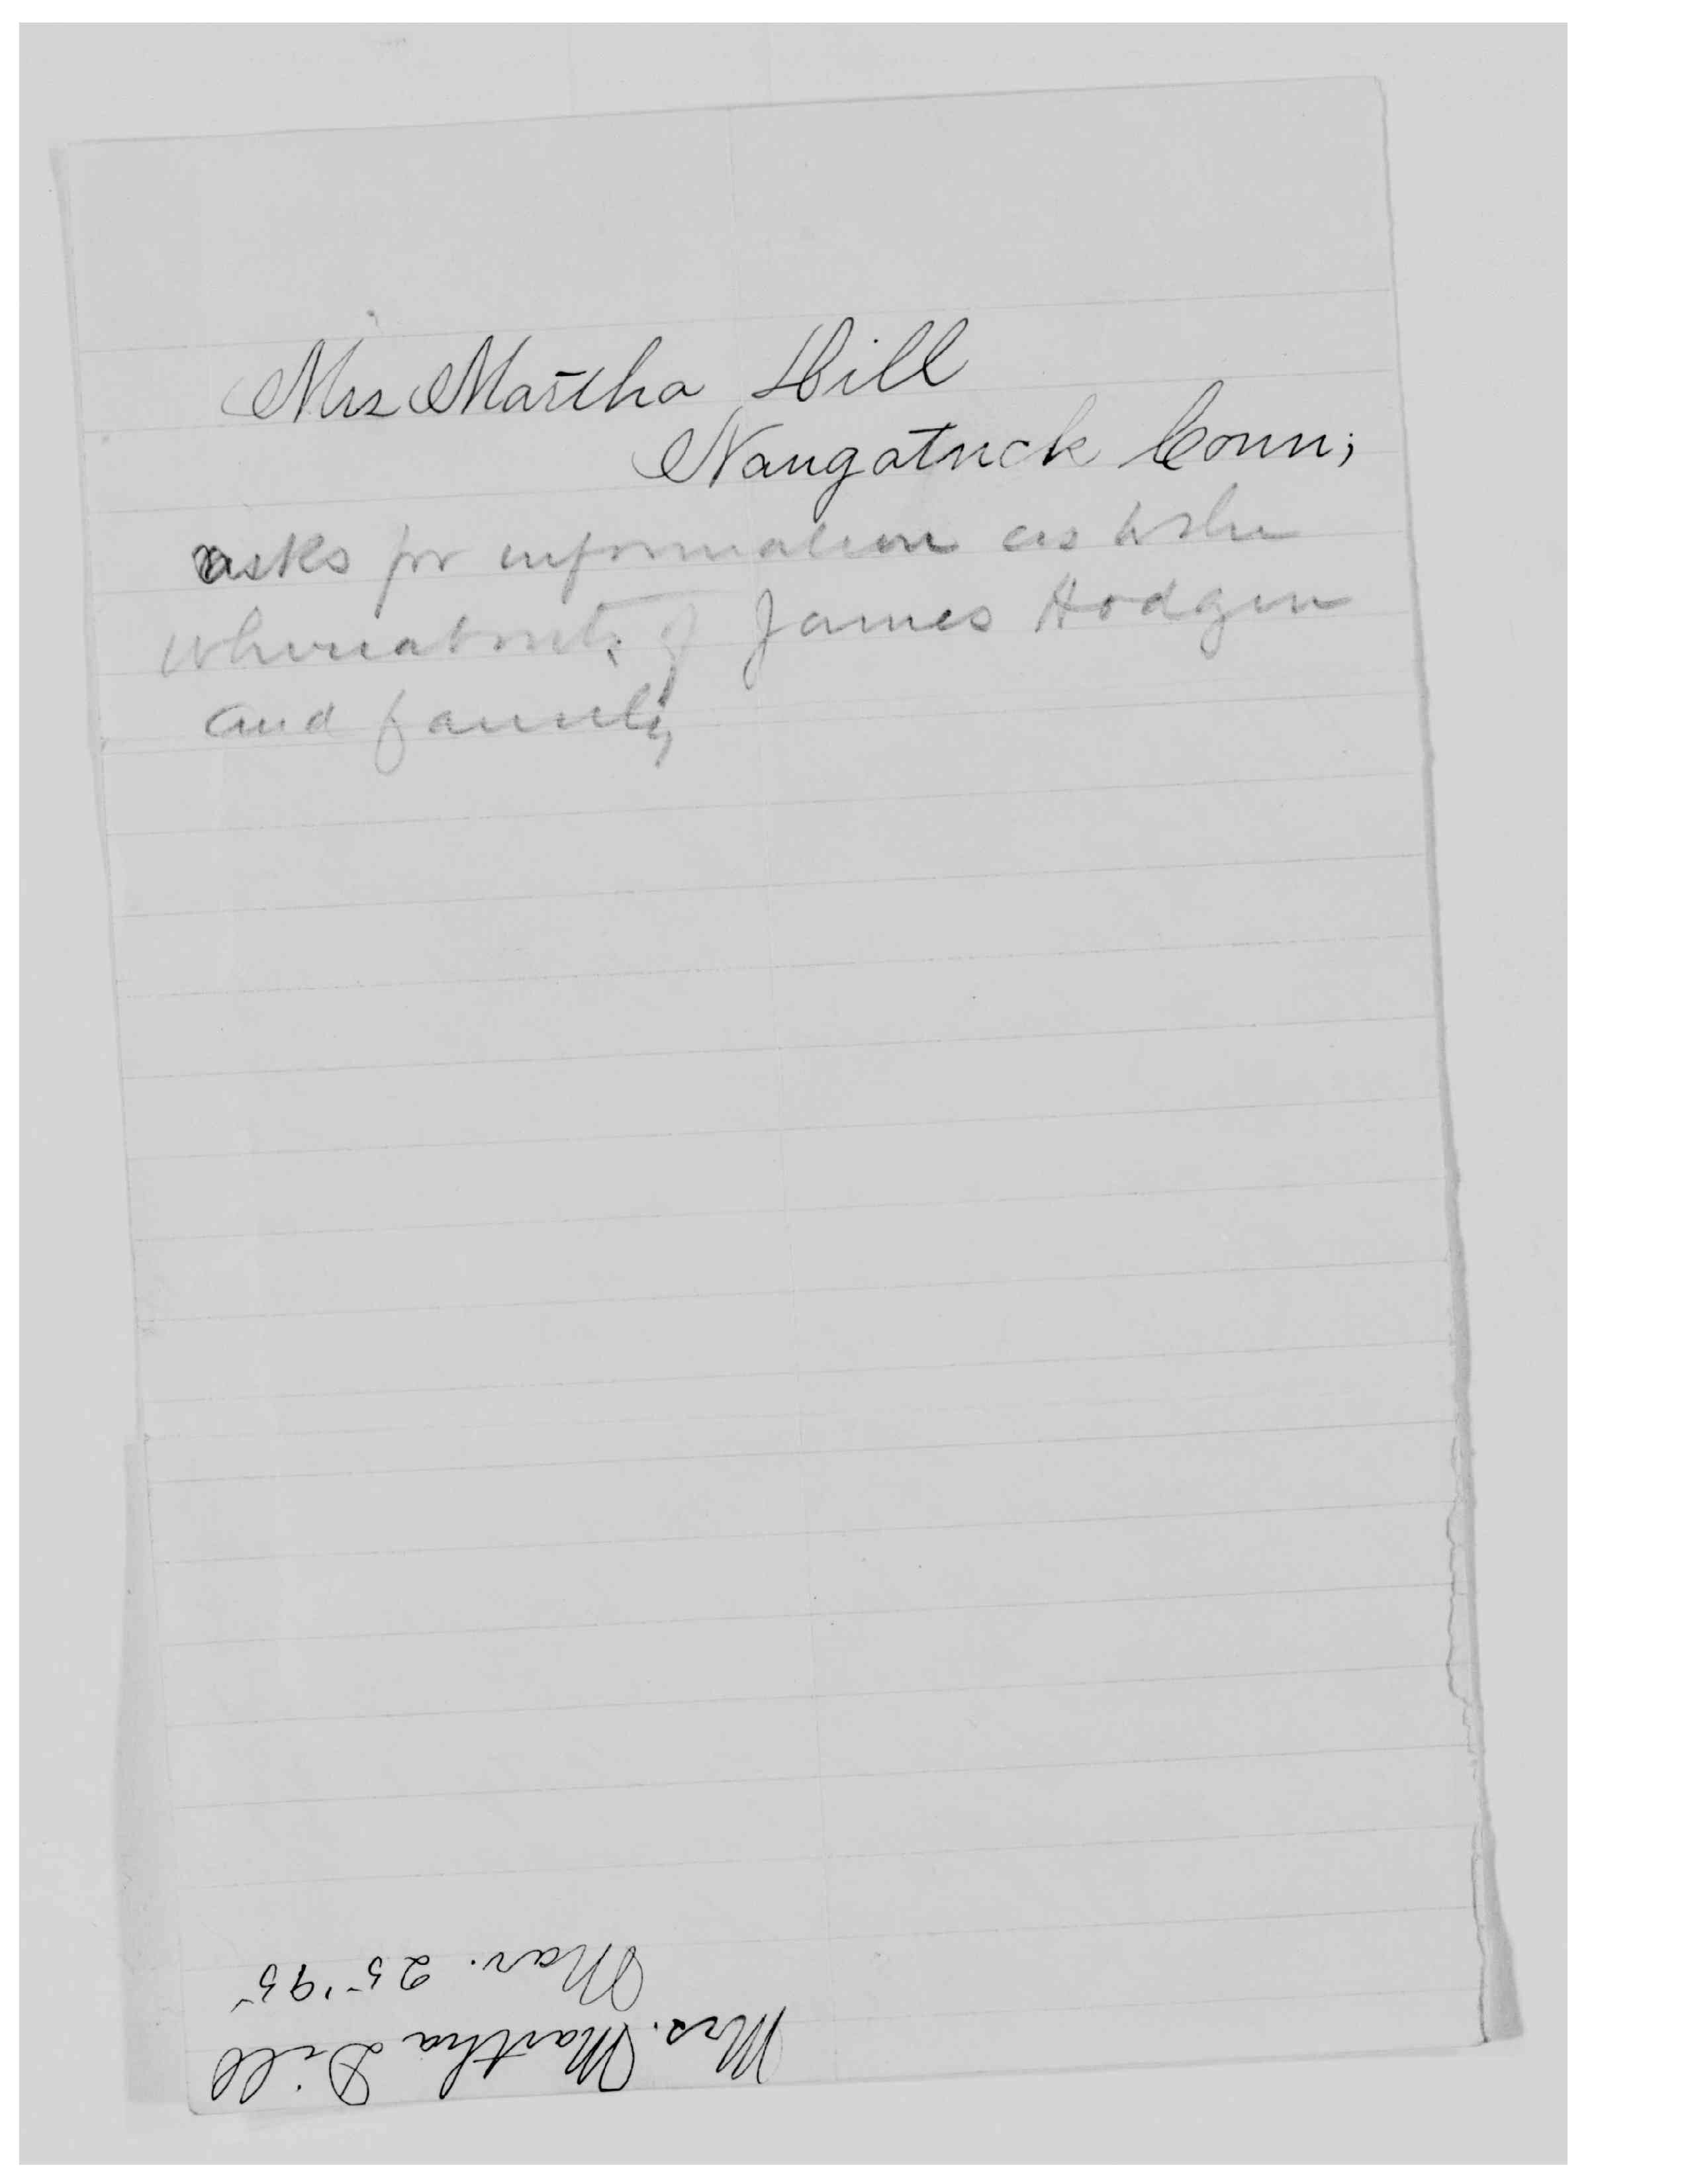 Mrs Martha Hill
Naugatuck Conn;
asks for information as to the
whereabouts of James Hodgin
and family
Mrs. Martha Dill
Mar. 25 '95